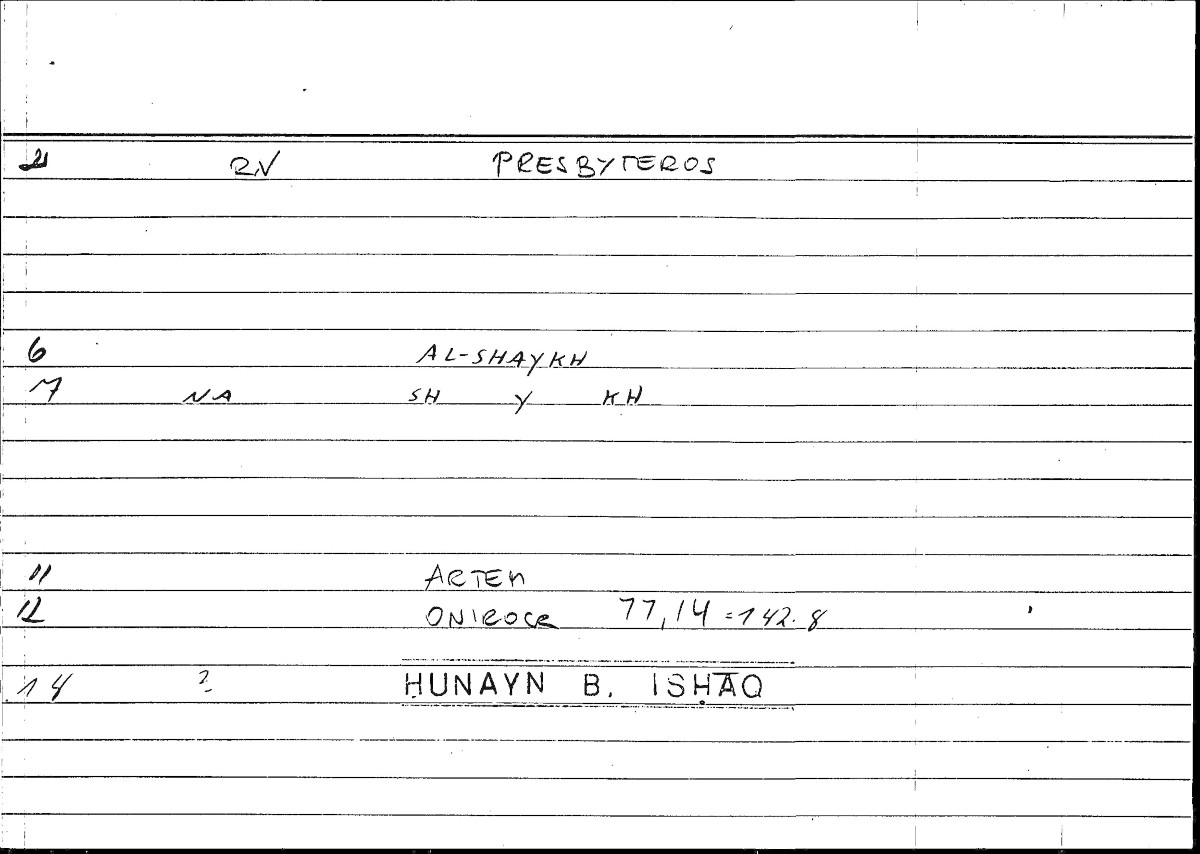 21 RV PRESBYTEROS
6 AL-SHAYKH
7 NA SH Y KH
11 ARTEM
12 ONIROCR 77,14 = 142.8
14 2 ḤUNAYN B. ISḤĀQ